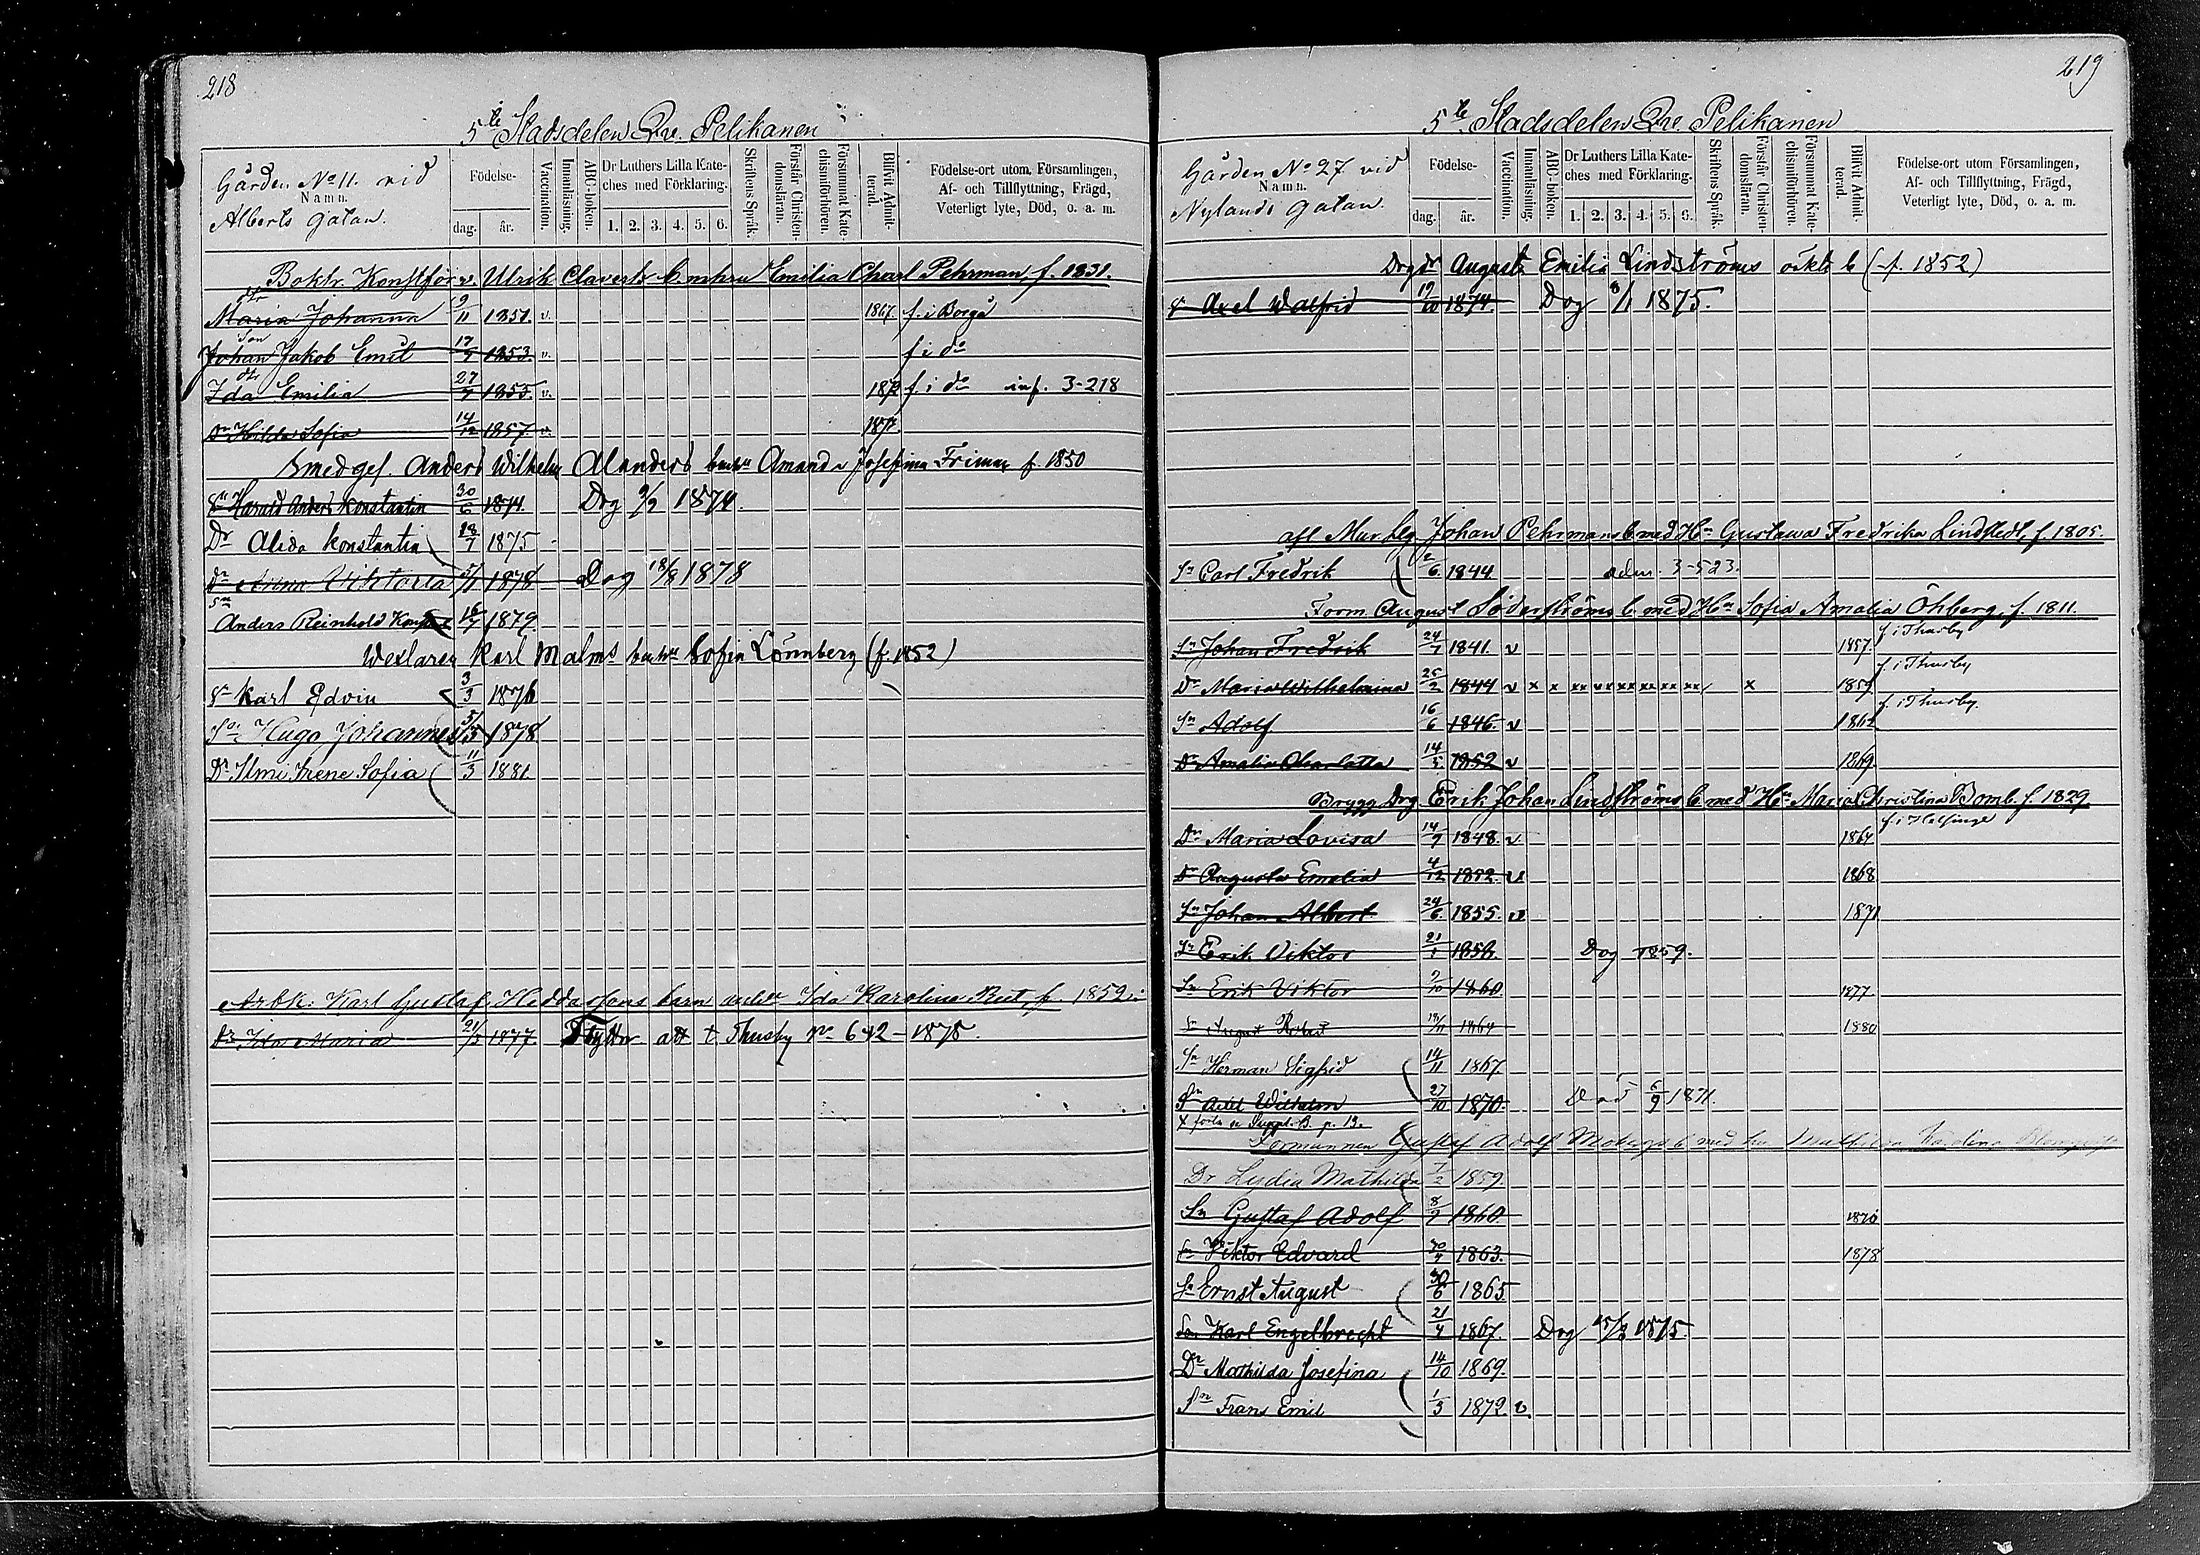 218
5te Stadsdelen Qve. Pelikanen
Gården No 11. vid
Namn.
Alberts gatan.
Födelse-
dag. år.
Vaccination.
Innanläsning.
ABC-boken.
Dr Luthers Lilla Kate-
ches med Förklaring.
1. 2. 3. 4. 5. 6.
Skriftens Språk.
Förstår Christen-
domsläran.
Försummat Kate-
chismiförhören.
Blifvit Admit-
terad.
Födelse-ort utom, Församlingen,
Af- och Tillflyttning, Frägd,
Veterligt lyte, Död, o. a. m.
Boktr. Konstförv. Ulrik Claverts b. m hru Emilia Charl Pehrman, f. 1831.
dtr
Maria Johanna 9/11 1851. v. 1867. f. i Borgå
Son
Johan Jakob Emil 17/9 1853. v. f i do
dtr
Ida Emilia 27/7 1855. v. 1872 f. i do inf. 3-218
Dr Hilda Sofia 14/12 1857. v. 187
Smedges. Anders Wilhelm Alanders Amanda Josefina Friman f. 1850
Sn Harald Anders Konstantin 30/6 1874. Dog 2/9 1874.
Dr Alida Konstantia 18/7 1875
Dr Anna Viktoria 5/1 1878 Dog 18/8 1878
Sn
Anders Reinhold 16/7 1879
Karl Malms Sofia Lönnberg (f. 1852)
Sn Karl Edvin 3/3 1876
Sn Hugo Johannes 5/3 1878
Dr Ilmi Irene Sofia 11/3 1881
Arbk. Karl Gustaf Heddassons barn Ida Karolina f. 1852
Dr Ida Maria 21/3 1877. Flyttn att t. Thusby No 642-1878.
219
5te. Stadsdelen Qve. Pelikanen
Gården No 27. vid
Namn.
Nylands gatan.
Födelse-
dag. år.
Vaccination.
Innanläsning.
ABC-boken.
Dr Luthers Lilla Kate-
ches med Förklaring.
1. 2. 3. 4. 5. 6.
Skriftens Språk.
Förstår Christen-
domsläran.
Försummat Kate-
chismiförhören.
Blifvit Admit-
terad.
Födelse-ort utom Församlingen,
Af- och Tillflyttning, Frägd,
Veterligt lyte, Död, o. a. m.
Drgdr Augusta Emilia Lindströms oäkta b (f. 1852)
Sn Axel Walfrid 19/10 1874. Dog 8/1 1875.
afl Mur. Johan Pehrmans b. med Hu Gustawa Fredrika Lindstedt, f. 1805.
Sn Carl Fredrik 2/6 1844 adm. 3-523.
Form. August Söderströms b. med Hu Sofia Amalia Öhberg, f. 1811.
Sn Johan Fredrik 24/7 1841. v 1857. f. i Thusby
Dr Maria Wilhelmina 25/2 1844 v x x xx xx xx xx xx xx x 1859 f. i Thusby
Sn Adolf 16/6 1846. v 1862 f. i Thusby.
Dr Amalia Charlotta 14/5 1852 v 1869.
Brygg Drg Erik Johan Lindströms b med Hu Maria Christina Bomb. f. 1829
Dr Maria Lovisa 14/9 1848. v. 1864 f. i Helsinge
Dr Augusta Emelia 4/12 1852. v 1868
Sn Johan Albert 24/6 1855. v 1871
Sn Erik Viktor 21/1 1858 Dog 1859.
Sn Erik Viktor 9/10 1860 1877.
Sn August Robert 1864 1880
Sn Herman Sigfrid 14/11 1867.
Sn Axel Wilhelm 27/10 1870. Död 6/9 1871.
forts. se Suppl. B. p. 13.
Formannen Gustaf Adolf b med hu Mathilda Karolina
Dr Lydia Mathilda 7/2 1859.
Sn Gustaf Adolf 8/9 1860.
Sn Viktor Edvard 1863. 1878
Sn Ernst August 30/6 1865
Son Karl Engelbrecht 21/4 1867. Dog 15/3 1875
Dr Mathilda Josefina 14/10 1869.
Sn Frans Emil 1/3 1872. v.